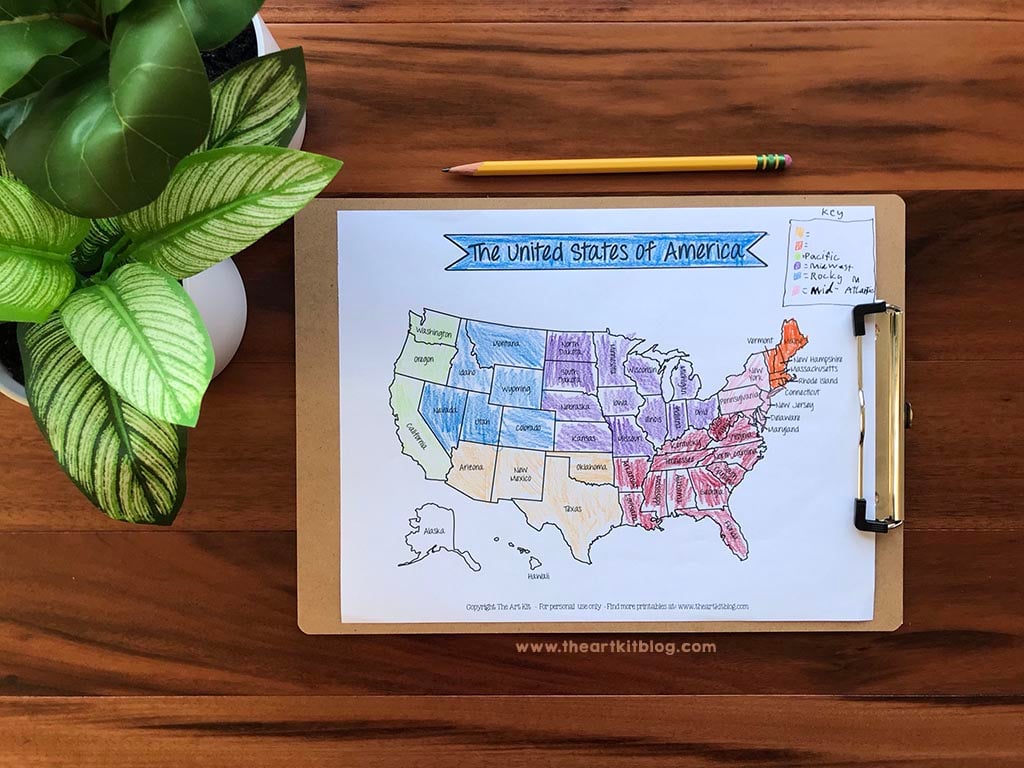 Key
=
=
=Pacific
=Midwest
=Rocky M
=Mid-Atlantic
The United States of America
Washington
Oregon
California
Nevada
Idaho
Montana
Wyoming
Utah
Colorado
Arizona
New
Mexico
North
Dakota
South
Dakota
Nebraska
Kansas
Oklahoma
Texas
Iowa
Missouri
Wisconsin
Illinois
Ohio
Kentucky
Tennessee
Georgia
Virginia
North Carolina
Pennsylvania
New
York
Vermont
Maine
New Hampshire
Massachusetts
Rhode Island
Connecticut
New Jersey
Delaware
Maryland
Alaska
Hawaii
Copyright The Art Kit - For personal use only - Find more printables at: www.theartkitblog.com
www.theartkitblog.com